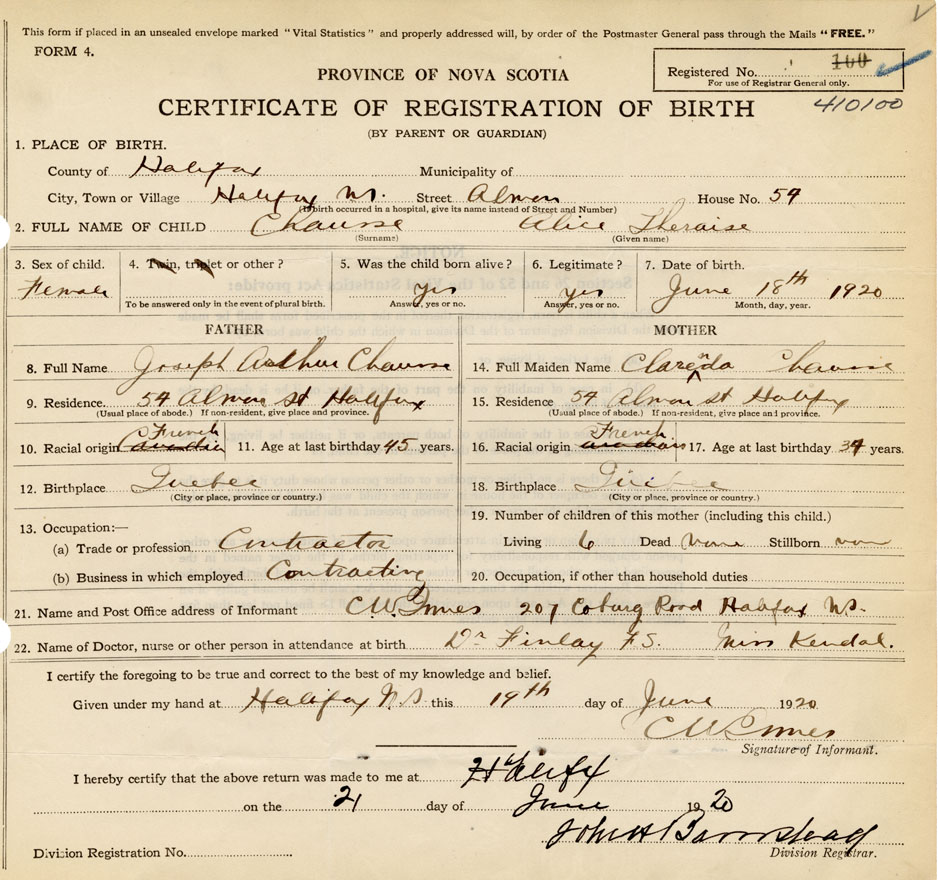 This form if placed in an unsealed envelope marked "Vital Statistics" and properly addressed will, by order of the Postmaster General pass through the Mails "FREE."
FORM 4.
PROVINCE OF NOVA SCOTIA
Registered No. 160
For use of Registrar General only.
CERTIFICATE OF REGISTRATION OF BIRTH
410100
(BY PARENT OR GUARDIAN)
1. PLACE OF BIRTH.
County of Halifax Municipality of
City, Town or Village Halifax N.S. Street Almon House No. 54
(If birth occurred in a hospital, give its name instead of Street and Number)
2. FULL NAME OF CHILD Chausse Alice Theraise
(Surname) (Given name)
3. Sex of child. 4. Twin, triplet or other? 5. Was the child born alive? 6. Legitimate? 7. Date of birth.
Female yes yes June 18th 1920
To be answered only in the event of plural birth. Answer, yes or no. Answer, yes or no. Month, day, year.
FATHER MOTHER
8. Full Name Joseph Arthur Chausse 14. Full Maiden Name Clarenda Chausse
9. Residence 54 Almon st Halifax 15. Residence 54 Almon st Halifax
(Usual place of abode.) If non-resident, give place and province. (Usual place of abode.) If non-resident, give place and province.
10. Racial origin French 11. Age at last birthday 45 years. 16. Racial origin French 17. Age at last birthday years.
12. Birthplace Quebec 18. Birthplace Quebec
(City or place, province or country.) (City or place, province or country.)
13. Occupation:— 19. Number of children of this mother (including this child.)
(a) Trade or profession Contractor Living 6 Dead None Stillborn non
(b) Business in which employed Contracting 20. Occupation, if other than household duties
21. Name and Post Office address of Informant C W Innes 207 Coburg Road Halifax NS.
22. Name of Doctor, nurse or other person in attendance at birth Dr Finlay Miss Kendal.
I certify the foregoing to be true and correct to the best of my knowledge and belief.
Given under my hand at Halifax N.S. this 19th day of June 1920
C W Innes
Signature of Informant.
I hereby certify that the above return was made to me at Halifax
on the 21 day of June 1920
John H Barnstead
Division Registration No. Division Registrar.